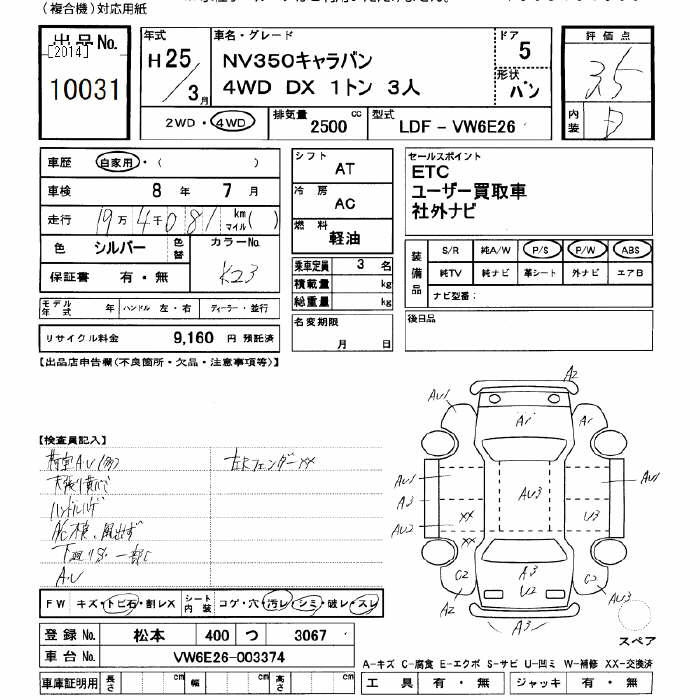 （複合機）対応用紙
出品No.
[2014]
10031
年式
H25/3月
車名・グレード
NV350キャラバン
4WD DX 1トン 3人
ドア
5
形状
バン
評価点
3.5
内装
D
2WD・4WD
排気量 2500 cc
型式 LDF-VW6E26
車歴 自家用・( )
車検 8年 7月
走行 19万4千081 km マイル( )
色 シルバー 色替
カラーNo. K23
保証書 有・無
モデル年式 年 ハンドル 左・右 ディーラー・並行
リサイクル料金 9,160 円 預託済
シフト AT
冷房 AC
燃料 軽油
乗車定員 3 名
積載量 kg
総重量 kg
名変期限 月 日
セールスポイント
ETC
ユーザー買取車
社外ナビ
装備品
S/R 純A/W P/S P/W ABS
純TV 純ナビ 革シート 外ナビ エアB
ナビ型番：
後日品
【出品店申告欄（不良箇所・欠品・注意事項等）】
【検査員記入】
荷室AU(多)
左Rフェンダーxx
天張り黄バミ
ハンドルハゲ
下廻りS・一部C
A.U
A2
AU1
A1
A1
AU1
A3
AU2
AU3
XX
XX
U3
C2
A2
A3
U2
C2
AU3
A3
スペア
FW キズ・トビ石・割レX シート内装 コゲ・穴・汚レ・シミ・破レ・スレ
登録No. 松本 400 つ 3067
車台No. VW6E26-003374
車庫証明用 長さ cm 幅 cm 高さ cm
A-キズ C-腐食 E-エクボ S-サビ U-凹ミ W-補修 XX-交換済
工具 有・無 ジャッキ 有・無